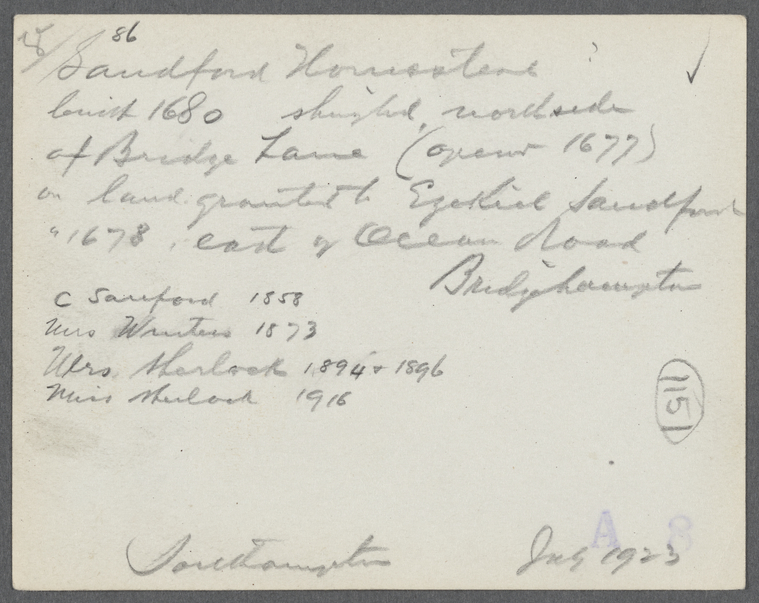 86
Sandford Homestead
built 1680 shingled, north side
of Bridge Lane (opened 1677)
on land granted to Ezekiel Sandford
" 1678, east of Ocean Road
Bridgehampton
C Sandford 1858
Mrs Winters 1873
Mrs. Sherlock 1894 & 1896
Miss Sherlock 1916
1151
A 8
Southampton July 1923